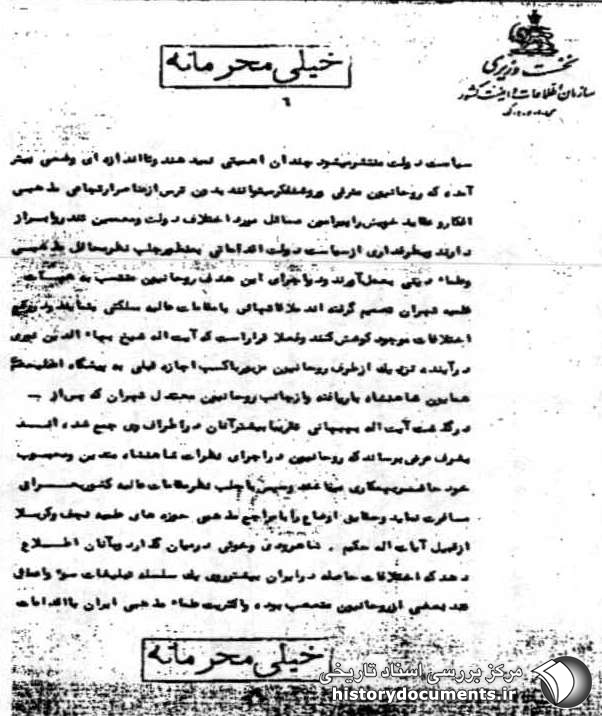 خیلی محرمانه
نخست وزیری
سازمان اطلاعات و امنیت کشور
س.ا.و.ا.ک
۶
سیاست دولت منتشر میشود چندان اهمیتی نمیدهند و تا اندازه ای وضعی پیش
آمده که روحانیون مترقی و روشنفکر میتوانند بدون ترس از عناصر ارتجاعی مذهبی
افکار و عقاید خویش را پیرامون مسائل مورد اختلاف دولت و متعصبین تندرو ابراز
دارند و بطرفداری از سیاست دولت اقداماتی بمنظور جلب نظر محافل مذهبی
و علماء دینی بعمل آورند و در اجرای این هدف روحانیون منتسب به هیئات
علمیه تهران تصمیم گرفته اند ملاقاتهائی با مقامات عالیه مملکتی بنمایند و در رفع
اختلافات موجود کوشش کنند و فعلا قرار است که آیت اله شیخ بهاء الدین نوری
در آینده نزدیک از طرف روحانیون مزبور با کسب اجازه قبلی به پیشگاه اعلیحضرت
همایون شاهنشاه باریافته و از جانب روحانیون معتدل تهران که پس از
درگذشت آیت اله بهبهانی تقریبا بیشتر آنان در اطراف وی جمع شده اند
بشرف عرض برساند که روحانیون در اجرای نظرات شاهنشاه متدین و محبوب
خود حاضر به همکاری میباشند و سپس با جلب نظر مقامات عالیه کشور به عراق
مسافرت نماید و حقایق اوضاع را با مراجع مذهبی حوزه های علمیه نجف و کربلا
از قبیل آیات اله حکیم ، شاهرودی و خوئی در میان گذارد و بآنان اطلاع
دهد که اختلافات حاصله در ایران بیشتر روی یک سلسله تبلیغات سوء و اعمال
تند بعضی از روحانیون متعصب بوده و اکثریت علماء مذهبی ایران با اقدامات
خیلی محرمانه
مرکز بررسی اسناد تاریخی
historydocuments.ir